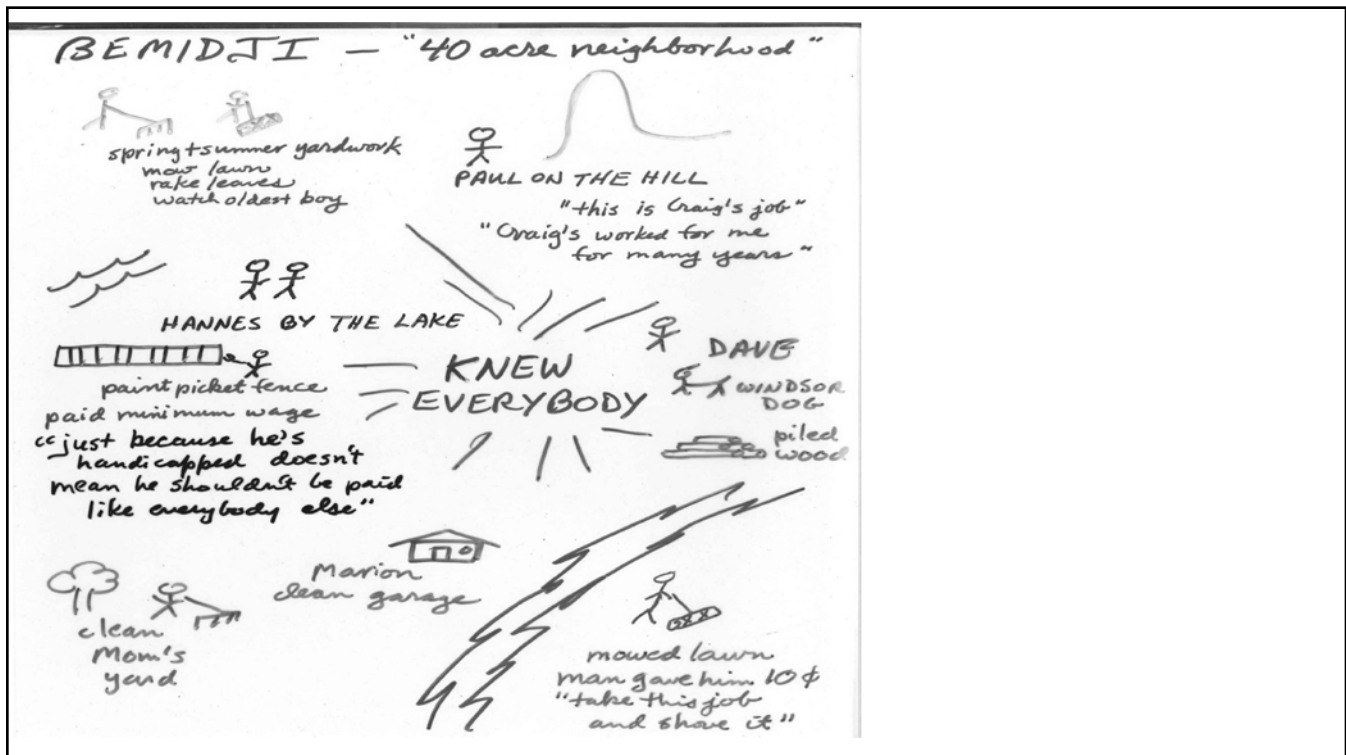 BEMIDJI — "40 acre neighborhood"
spring + summer yardwork
mow lawn
rake leaves
watch oldest boy
PAUL ON THE HILL
"this is Craig's job"
"Craig's worked for me
for many years"
HANNES BY THE LAKE
paint picket fence
paid minimum wage
"just because he's
handicapped doesn't
mean he shouldn't be paid
like everybody else"
KNEW
EVERYBODY
DAVE
WINDSOR
DOG
piled
wood
Marion
clean garage
clean
Mom's
yard
mowed lawn
man gave him 10¢
"take this job
and shove it"